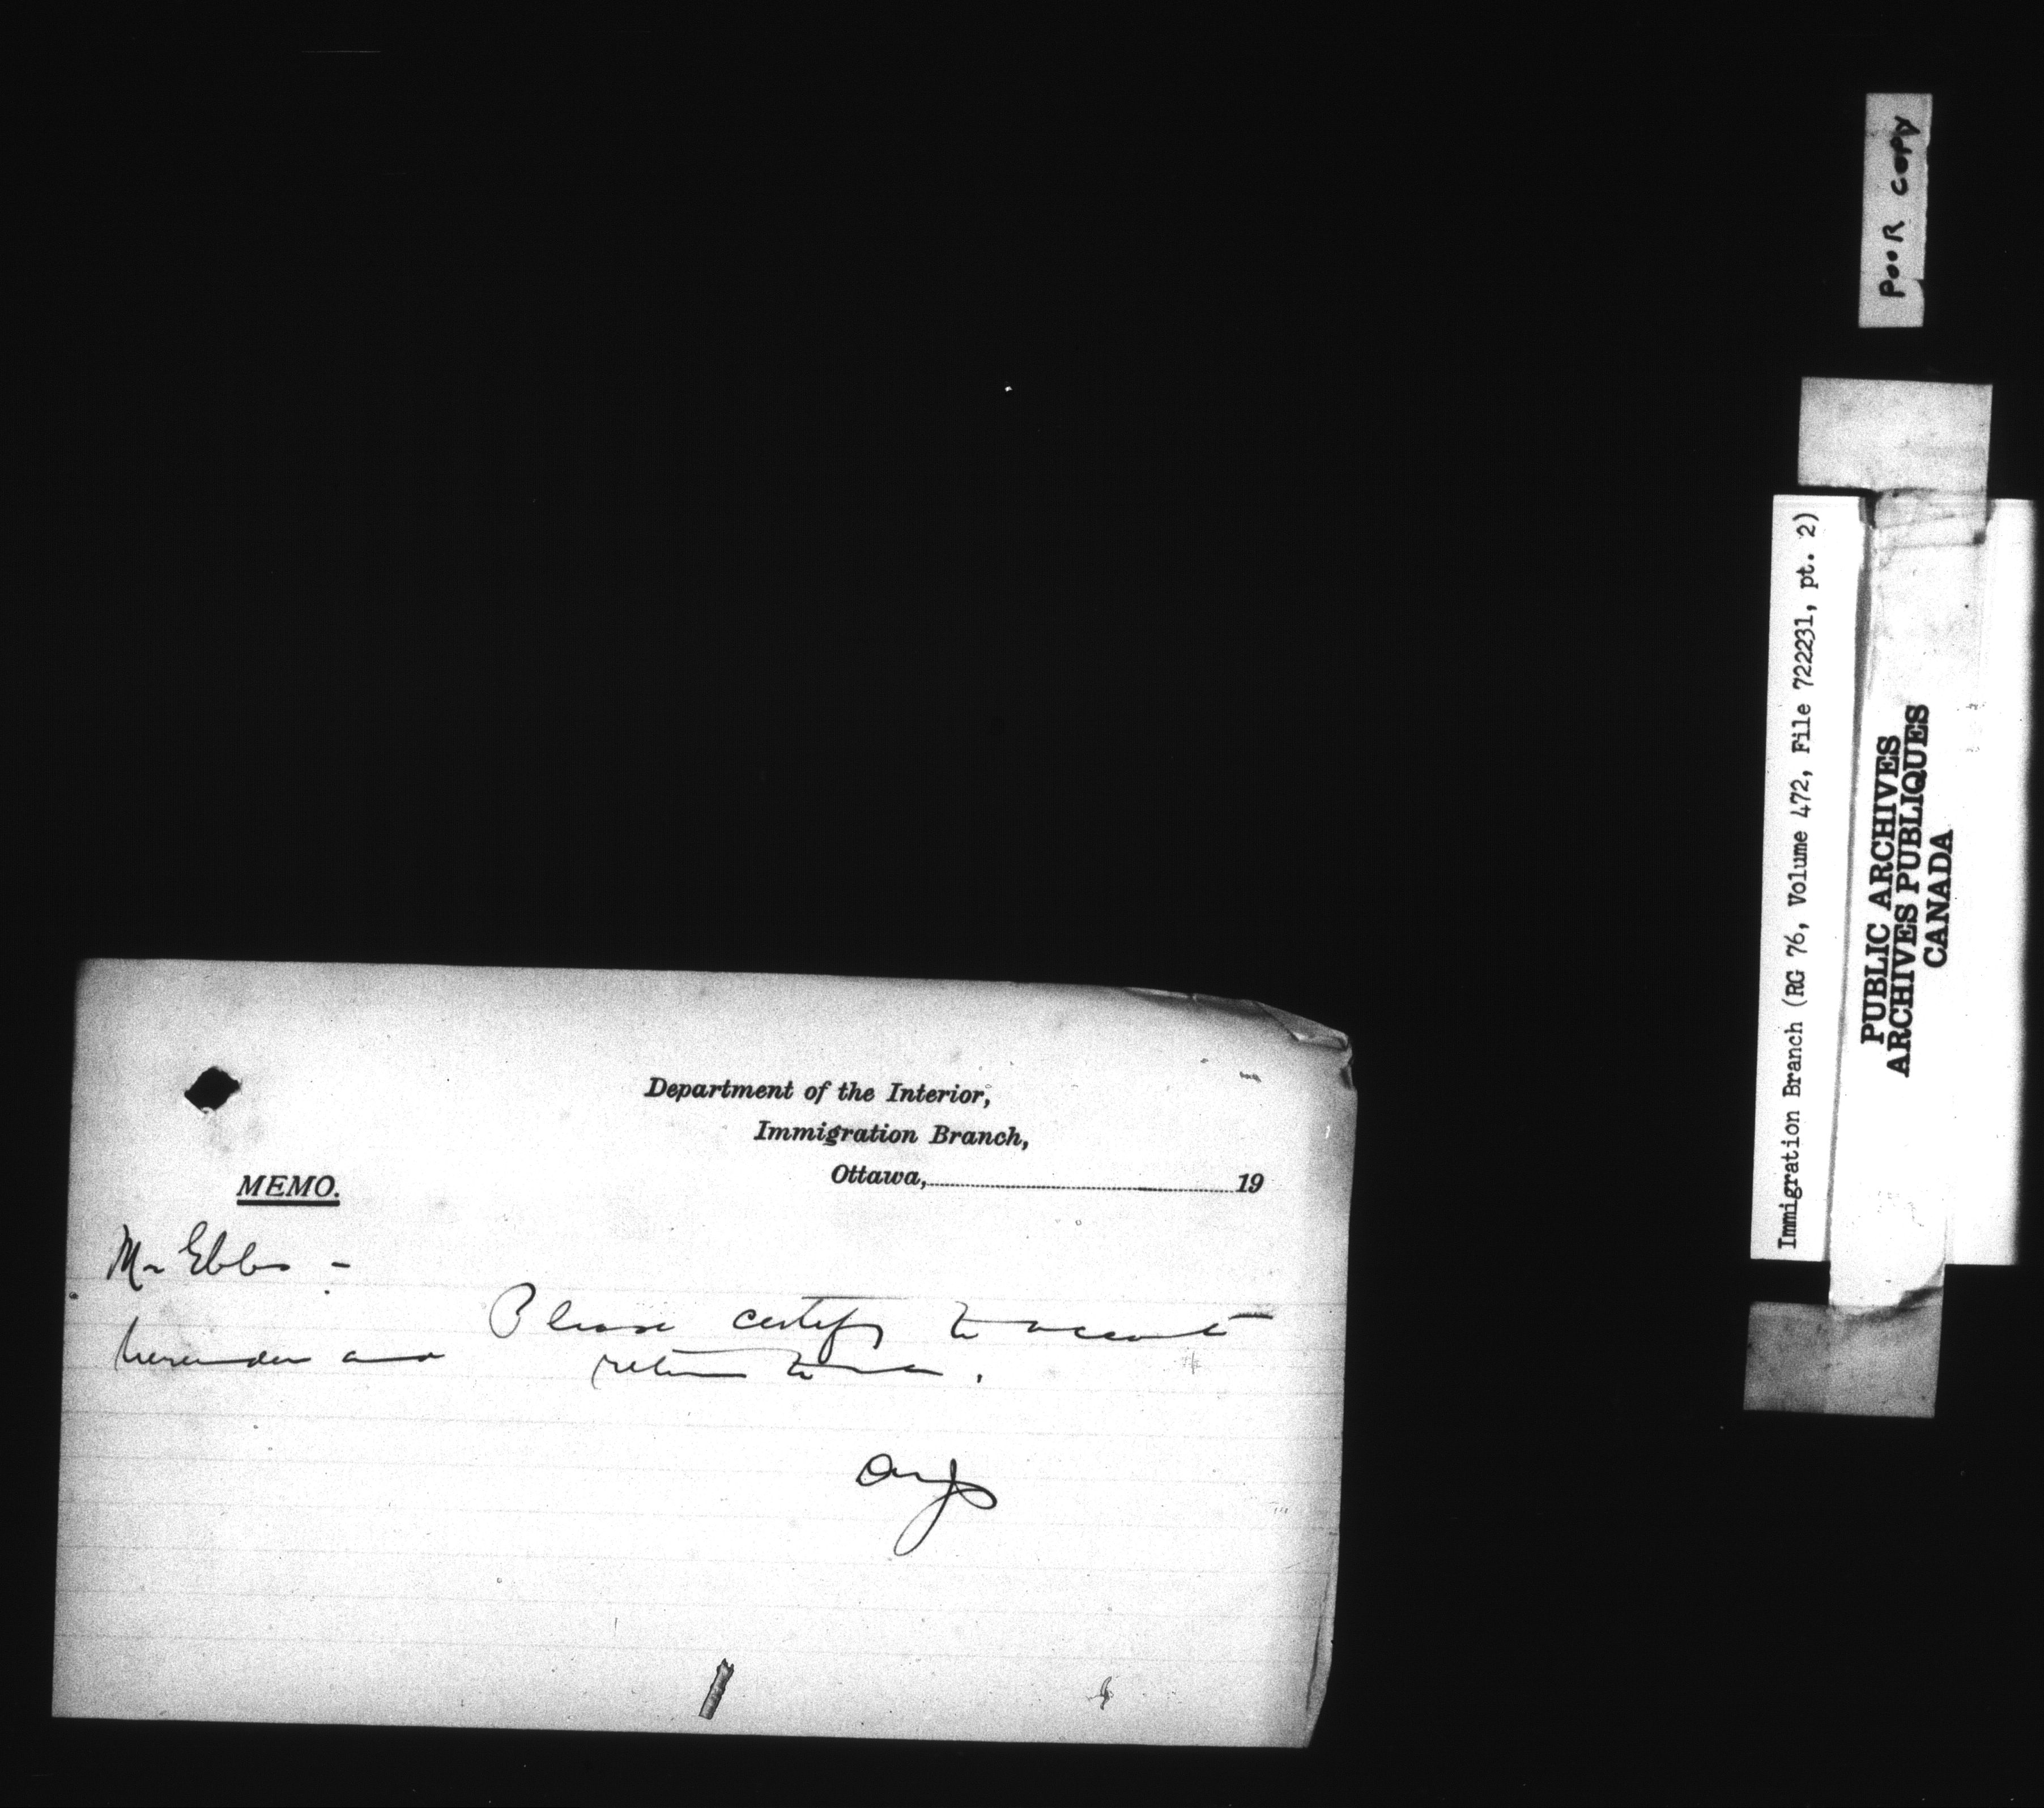 Department of the Interior,
Immigration Branch,
Ottawa, 19
MEMO.
Mr Ebbs -
Please certify to account
hereunder and return to me.
POOR COPY
Immigration Branch (RG 76, Volume 472, File 722231, pt. 2)
PUBLIC ARCHIVES
ARCHIVES PUBLIQUES
CANADA